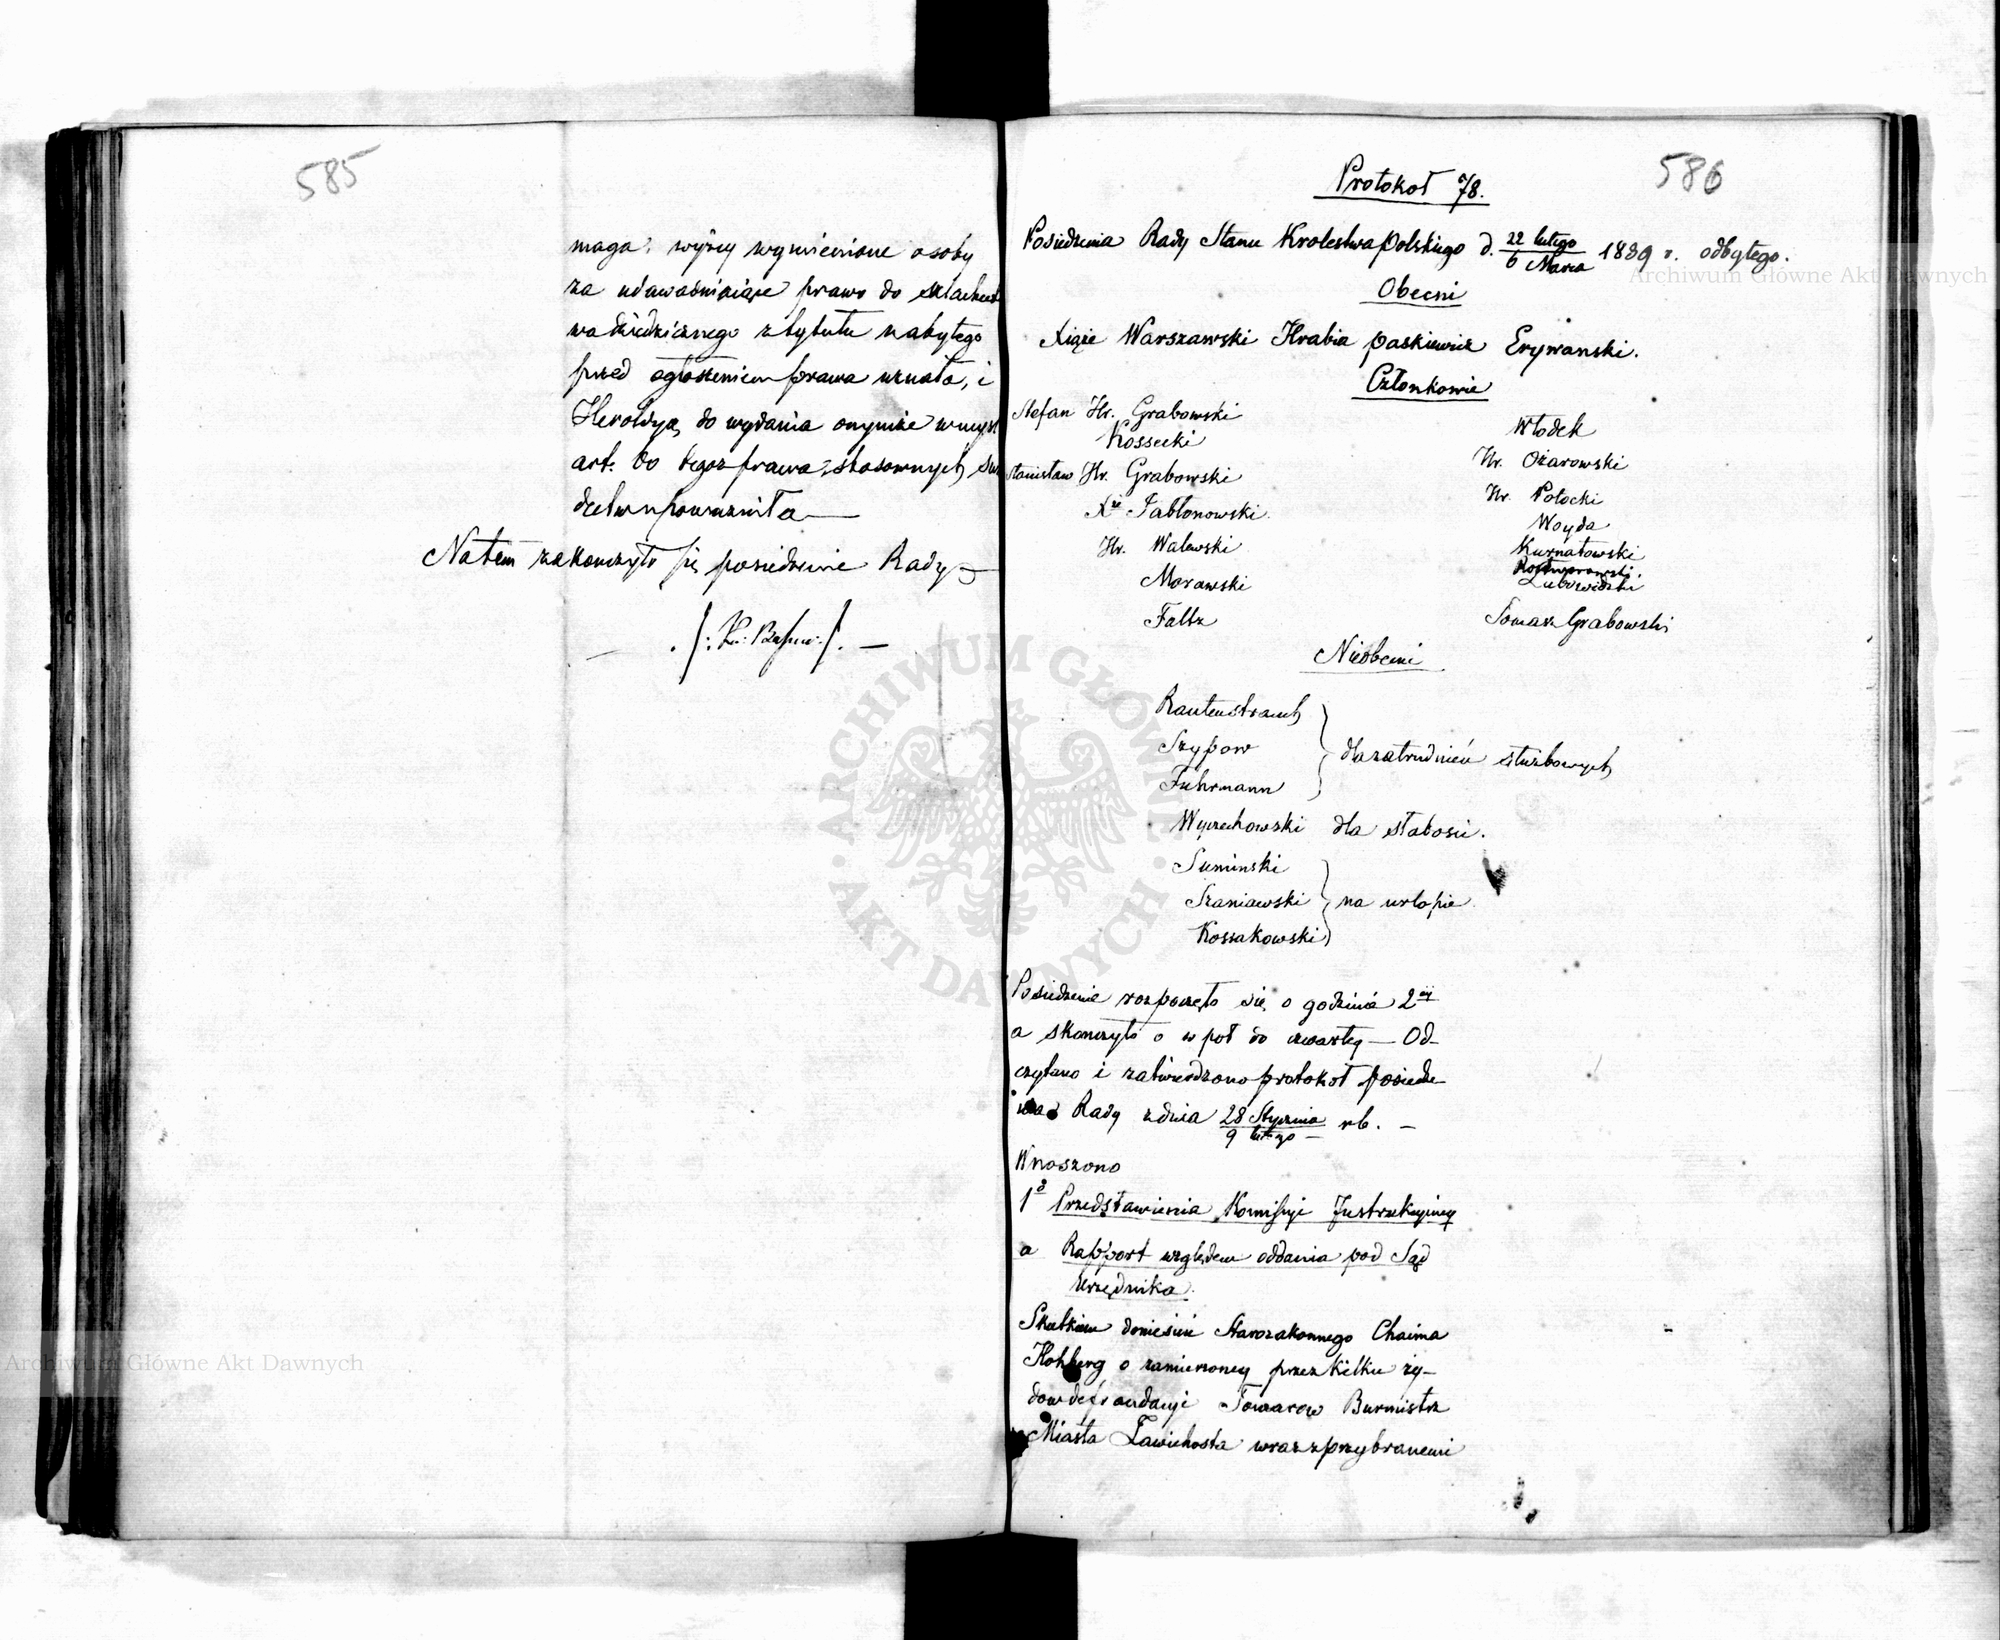 585
maga, wyżey wymienione osoby
za udawadniaiące prawo do szlachect
wa dziedzicznego z tytułu nabytego
przed ogłoszeniem prawa uznała, i
Heroldyą do wydania onymże w myśl
art. tegoż prawa, stosownych świ
dectw upoważniła —
Na tem zakończyło się posiedzenie Rady —
586
Protokoł 78.
Posiedzenia Rady Stanu Krolestwa Polskiego d. 22 lutego / 6 Marca 1839 r. odbytego.
Obecni
Xiąże Warszawski Hrabia Paskiewicz Erywanski.
Członkowie
Stefan Hr. Grabowski
Kossecki
Stanisław Hr. Grabowski
Xże Jabłonowski
Hr. Walewski
Morawski
Faltz
Włodek
Hr. Ożarowski
Hr. Potocki
Woyda
Kurnatowski
Rostworowski.
Lubowidzki
Tomasz Grabowski
Nieobecni
Rautenstrauch
Szypow
Fuhrmann
dla zatrudnień służbowych
Wyczechowski dla słabości.
Suminski
Szaniawski
Kossakowski
na urlopie
Posiedzenie rozpoczęło się o godzinie 2ey
a skonczyło o w poł do czwartey — Od-
czytano i zatwierdzono protokoł posiedze
nia Rady z dnia 28 Stycznia / 9 lutego rb. —
Wnoszono
1o Przedstawienia Komissyi Instrukcyiney
a Rapport względem oddania pod Sąd
Urzędnika.
Skutkiem doniesień Starozakonnego Chaima
Kohberg o zamierzoney przez kilku ży-
dow defraudacyi Towarow Burmistrz
Miasta Zawichosta wraz z przybranemi
Archiwum Główne Akt Dawnych
Archiwum Główne Akt Dawnych
ARCHIWUM GŁÓWNE AKT DAWNYCH